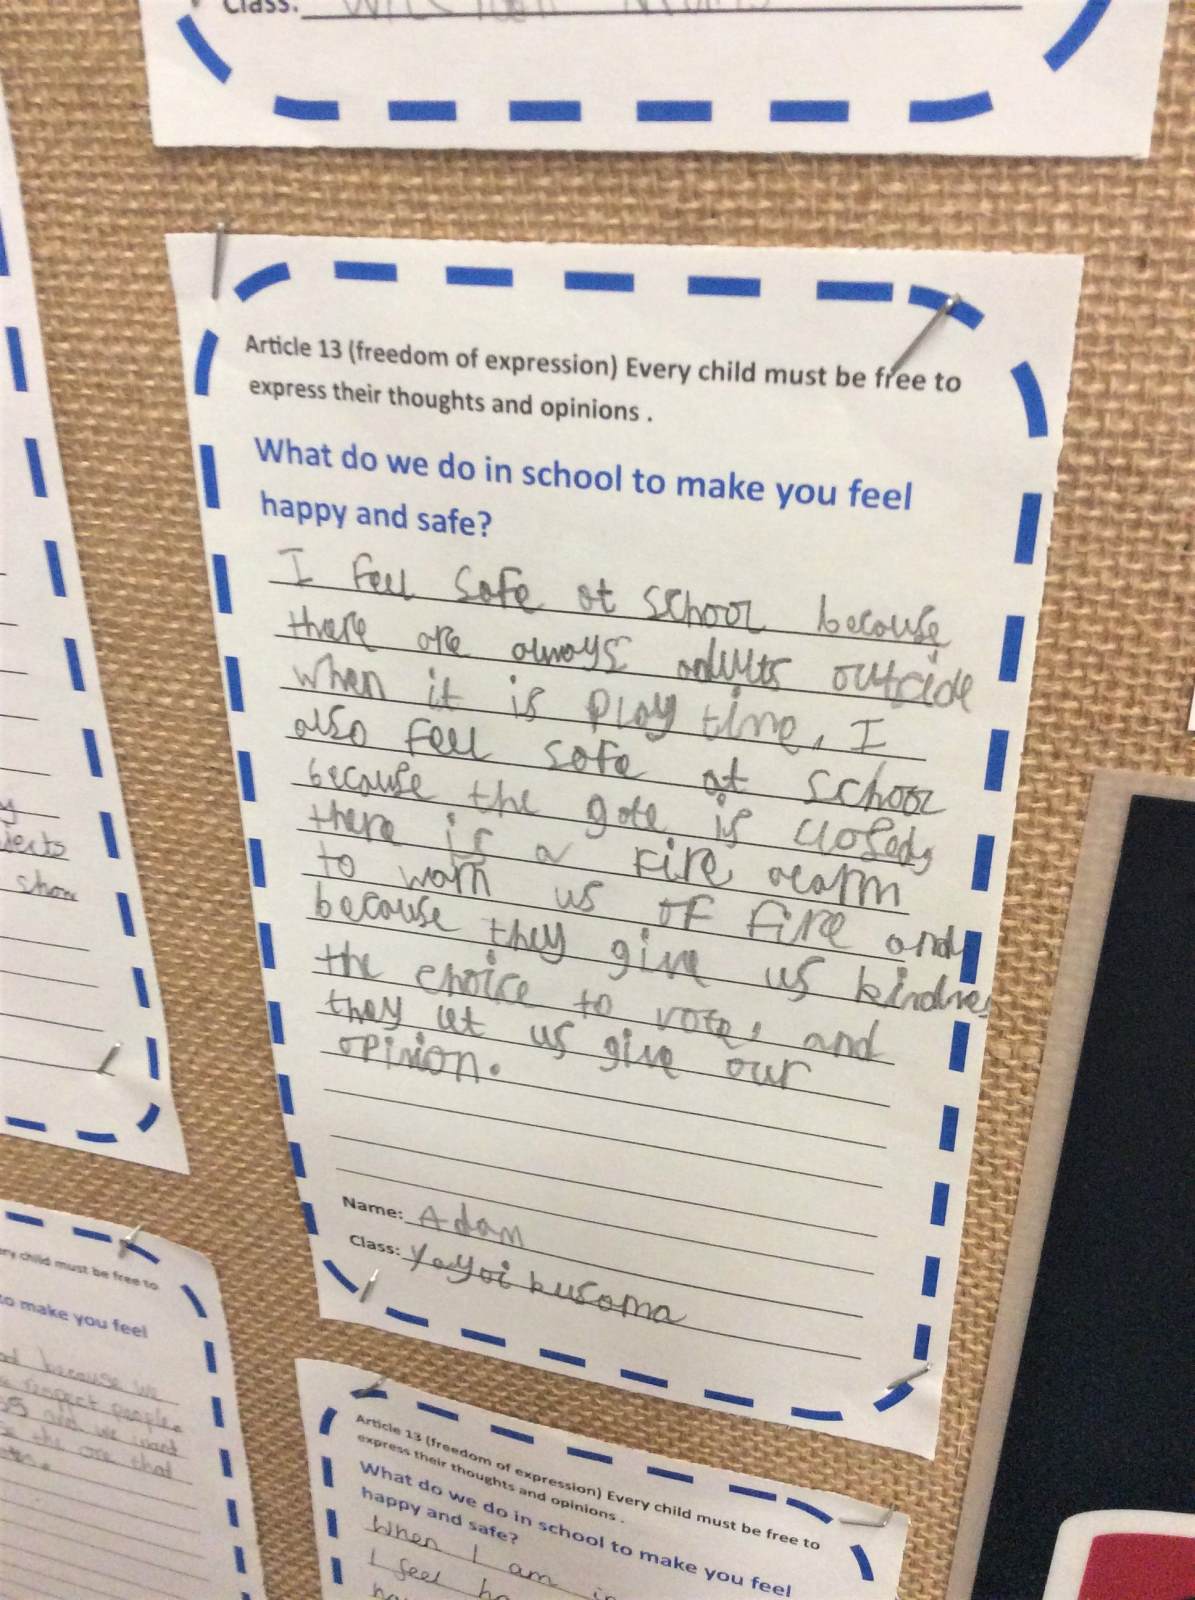 Class:
Article 13 (freedom of expression) Every child must be free to
express their thoughts and opinions .
What do we do in school to make you feel
happy and safe?
I feel safe at school because
there are always adults outside
when it is play time, I
also feel safe at school
because the gate is closed,
there is a fire alarm
to warn us of fire and
because they give us kindnes
the choice to vote, and
they let us give our
opinion.
Name: Adam
Class: Yayoi kusama
jects
show
ery child must be free to
to make you feel
because we
respect people.
and we want
the one that
Article 13 (freedom of expression) Every child must be free to
express their thoughts and opinions .
What do we do in school to make you feel
happy and safe?
When I am in
I feel ha